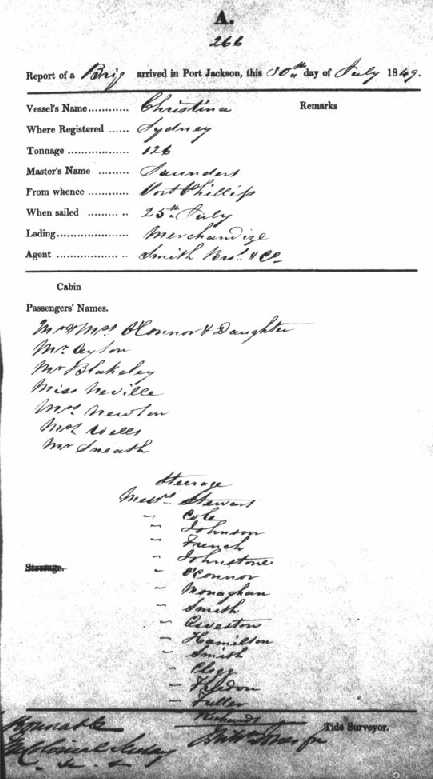 A.
266
Report of a Brig arrived in Port Jackson, this 30th day of July 1849.
Vessel's Name Christina Remarks
Where Registered Sydney
Tonnage 126
Master's Name Saunders
From whence Port Phillip
When sailed 25th July
Lading Merchandize
Agent Smith Bros. & Co.
Cabin
Passengers' Names.
Mr & Mrs O'Connor & Daughter
Mr. Ayton
Mr Blakeley
Miss Neville
Mrs Newton
Mrs Wells
Mr Sneath
Steerage
Messrs Stewart
" Cole
" Johnson
" French
" Johnstone
Steerage. " O'Connor
" Monaghan
" Smith
" Hamilton
" Smith
" Clegg
" Fuller
Richards
Tide Surveyor.
Honorable
Colonial Secy